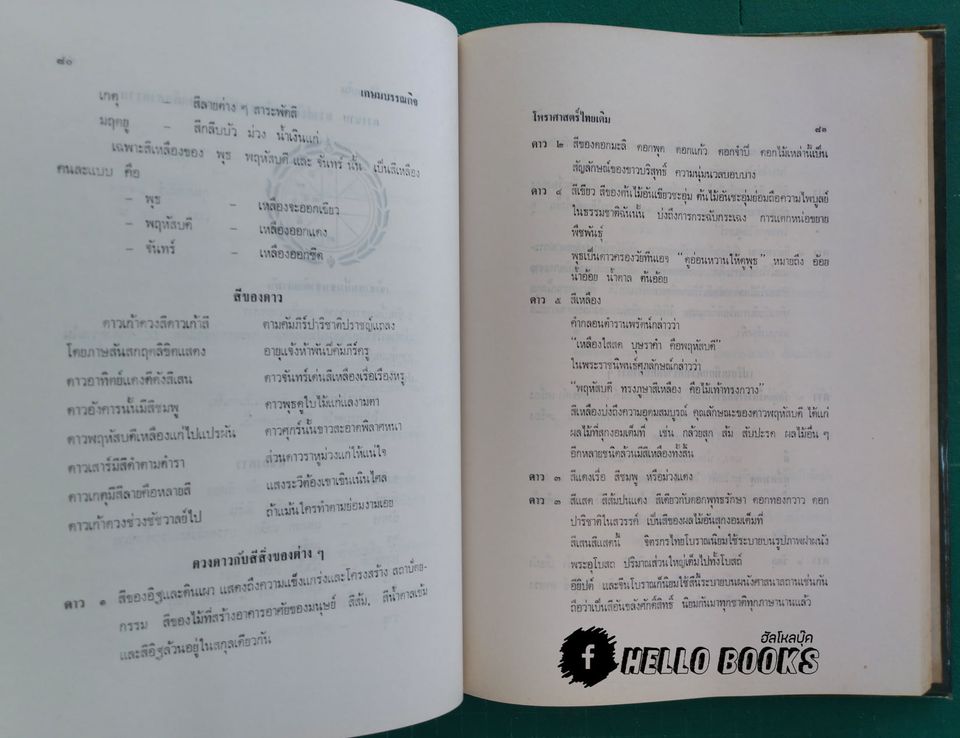 ๘๐
เกษมบรรณกิจ
เกตุ – สีลายต่าง ๆ สาระพัดสี
มฤตยู – สีกลีบบัว ม่วง น้ำเงินแก่
เฉพาะสีเหลืองของ พุธ พฤหัสบดี และ จันทร์ นั้น เป็นสีเหลือง
คนละแบบ คือ
– พุธ – เหลืองจะออกเขียว
– พฤหัสบดี – เหลืองออกแดง
– จันทร์ – เหลืองออกซีด
สีของดาว
ดาวเก้าดวงสีดาวเก้าสี ตามคัมภีร์ปาริชาติปราชญ์แถลง
โดยภาษสันสกฤตลิขิตแสดง อายุแจ้งห้าพันปีคัมภีร์ครู
ดาวอาทิตย์แดงดีดังสีเสน ดาวจันทร์เด่นสีเหลืองเรื่อเรืองหรู
ดาวอังคารนั้นมีสีชมพู ดาวพุธดูใบไม้แก่แลงามตา
ดาวพฤหัสบดีเหลืองแก่ไปแปรผัน ดาวศุกร์นั้นขาวสะอาดพิลาศหนา
ดาวเสาร์มีสีดำตามตำรา ส่วนดาวราหูม่วงแก่ให้แน่ใจ
ดาวเกตุมีสีลายคือหลายสี แสงระวีต้องเขาเขินเนินไศล
ดาวเก้าดวงช่วงชัชวาลย์ไป ถ้าแม้นใครทำตามย่อมงามเอย
ดวงดาวกับสีสิ่งของต่าง ๆ
ดาว ๑ สีของอิฐและดินเผา แสดงถึงความแข็งแกร่งและโครงสร้าง สถาปัตย-
กรรม สีของไม้ที่สร้างอาคารอาศัยของมนุษย์ สีส้ม, สีน้ำตาลเข้ม
และสีอิฐล้วนอยู่ในสกุลเดียวกัน
โหราศาสตร์ไทยเดิม
๘๑
ดาว ๒ สีของดอกมะลิ ดอกพุด ดอกแก้ว ดอกจำปี ดอกไม้เหล่านี้เป็น
สัญลักษณ์ของขาวบริสุทธิ์ ความนุ่มนวลบอบบาง
ดาว ๔ สีเขียว สีของต้นไม้อันเขียวชะอุ่ม ต้นไม้อันชะอุ่มย่อมถือความไพบูลย์
ในธรรมชาติฉันนั้น บ่งถึงการกระฉับกระเฉง การแตกหน่อขยาย
พืชพันธุ์
พุธเป็นดาวครองวัยทีนเอจ "ดูอ่อนหวานให้ดูพุธ" หมายถึง อ้อย
น้ำอ้อย น้ำตาล ต้นอ้อย
ดาว ๕ สีเหลือง
คำกลอนตำรานพรัตน์กล่าวว่า
"เหลืองใสสด บุษราคำ คือพฤหัสบดี"
ในพระราชนิพนธ์ศุภลักษณ์กล่าวว่า
"พฤหัสบดี ทรงภูษาสีเหลือง คือไม้เท้าทรงกวาง"
สีเหลืองบ่งถึงความอุดมสมบูรณ์ คุณลักษณะของดาวพฤหัสบดี ได้แก่
ผลไม้ที่สุกงอมเต็มที่ เช่น กล้วยสุก ส้ม สับปะรด ผลไม้อื่น ๆ
อีกหลายชนิดล้วนมีสีเหลืองทั้งสิ้น
ดาว ๓ สีแดงเรื่อ สีชมพู หรือม่วงแดง
ดาว ๓ สีแสด สีส้มปนแดง สีเดียวกับดอกพุทธรักษา ดอกทองกวาว ดอก
ปาริชาติในสวรรค์ เป็นสีของผลไม้อันสุกงอมเต็มที่
สีเสนสีแสดนี้ จิตรกรไทยโบราณนิยมใช้ระบายบนรูปภาพฝาผนัง
พระอุโบสถ ปริมาณส่วนใหญ่เต็มไปทั้งโบสถ์
อียิปต์ และจีนโบราณก็นิยมใช้สีนี้ระบายบนผนังศาสนาสถานเช่นกัน
ถือว่าเป็นสีอันขลังศักดิ์สิทธิ์ นิยมกันมาทุกชาติทุกภาษานานแล้ว
ฮัลโหลบุ๊ค
f HELLO BOOKS